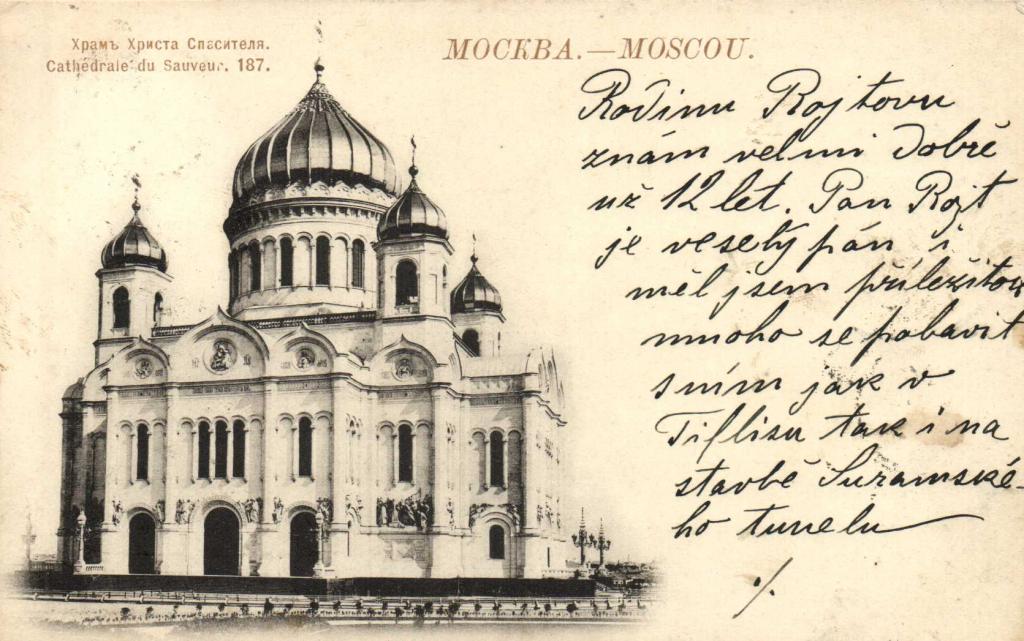 Храмъ Христа Спасителя.
Cathédrale du Sauveur. 187.
МОСКВА. — MOSCOU.
Rodinu Rojtovu
znám velmi dobře
už 12 let. Pan Rojt
je veselý pán i
měl jsem příležitost
mnoho se pobavit
sním jak v
Tiflisu tak i na
stavbě Suramské-
ho tunelu
./.